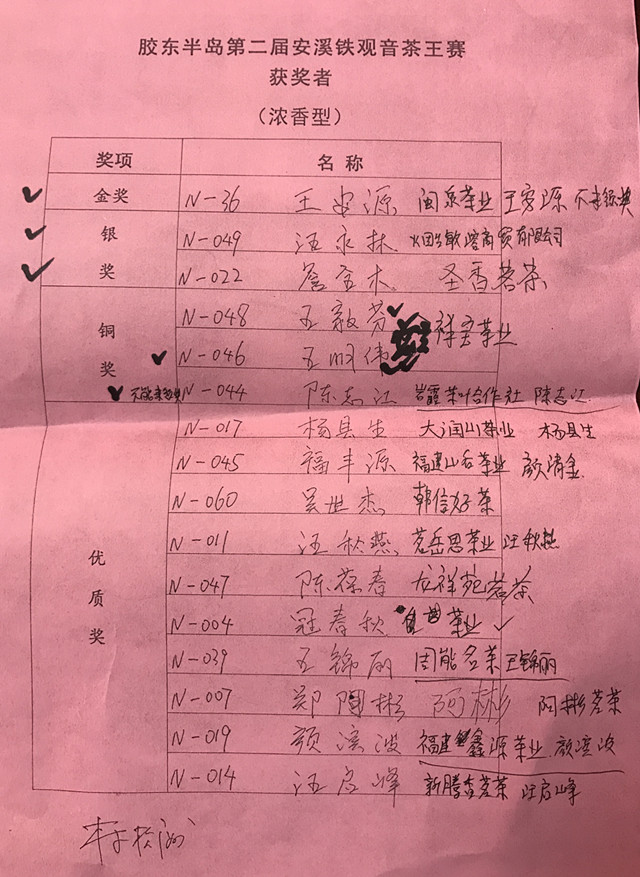 胶东半岛第二届安溪铁观音茶王赛
获奖者
（浓香型）
奖项 名称
金奖 N-36 王安源 闽泉茶业 王安源
银奖 N-049 汪永林 商贸有限公司
N-022 詹金木 圣香茗茶
铜奖 N-048 王毅芬 祥 茶业
N-046 王明伟
N-044 陈志江 茶叶合作社 陈志江
优质奖 N-017 杨县生 大润山茶业 杨县生
N-045 福丰源 福建山 茶业 颜清金
N-060 吴世杰 韩信好茶
N-011 汪秋燕 茗岳思茶业 汪秋燕
N-047 陈葆春 龙祥苑茗茶
N-004 冠春秋 茶业
N-039 王锦丽 国能名茶 王锦丽
N-007 郑阿彬 阿彬 阿彬茗茶
N-019 颜滨波 福建鑫源茶业 颜滨波
N-014 汪启峰 新腾香茗茶 汪启峰